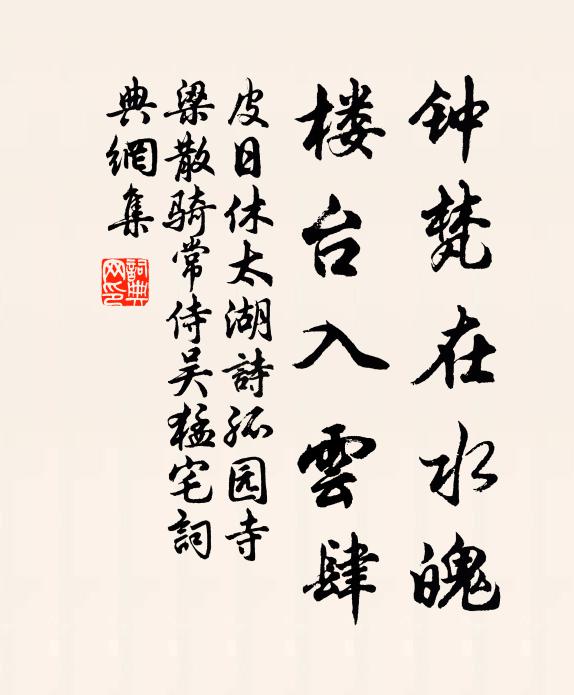 钟梵在水魄
楼台入雲肆
皮日休太湖詩孤园寺
梁散骑常侍吴猛宅詞
典網集
詞典网印